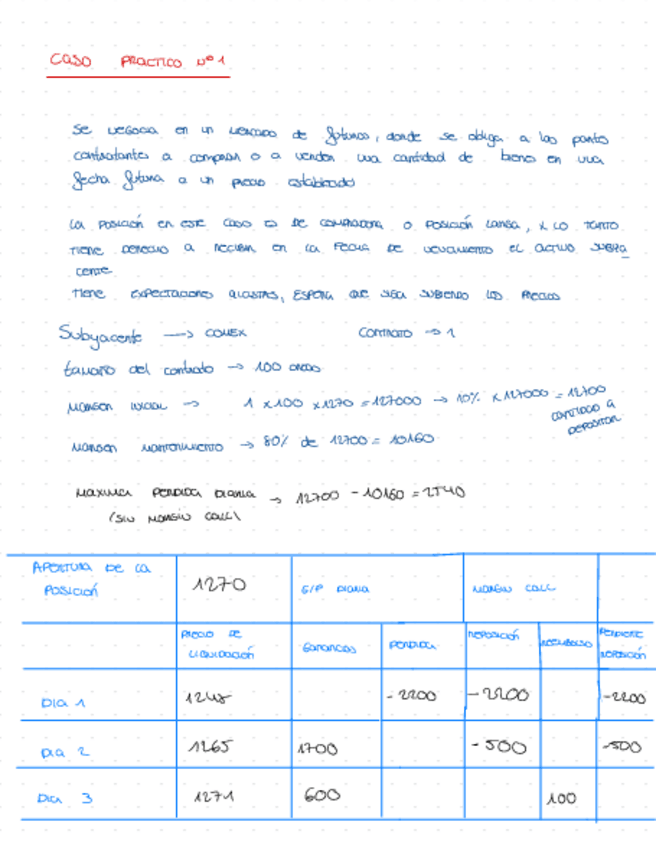 CASO PRACTICO Nº 1
Se negocia en un mercado de futuros, donde se obliga a las partes
contratantes a comprar o a vender una cantidad de bienes en una
fecha futura a un precio establecido
La posición en este caso es de compradora o posición larga, x lo tanto
tiene derecho a recibir en la fecha de vencimiento el activo subya
cente
Tiene expectaciones alcistas, espera que siga subiendo los precios
Subyacente → COMEX CONTRATO → 1
tamaño del contrato → 100 onzas
Margen inicial → 1 x 100 x 1270 = 127000 → 10% x 127000 = 12700
cantidad a
depositar
Margen mantenimiento → 80% de 12700 = 10160
Maxima perdida diaria → 12700 - 10160 = 2540
(sin margin call)
APERTURA DE LA
POSICIÓN 1270 G/P DIARIA MARGIN CALL
PRECIO DE
LIQUIDACIÓN GANANCIAS PERDIDA REPOSICIÓN REEMBOLSO PENDIENTE
REPOSICIÓN
DIA 1 1248 -2200 -2200 -2200
DIA 2 1265 1700 -500 -500
DIA 3 1271 600 100